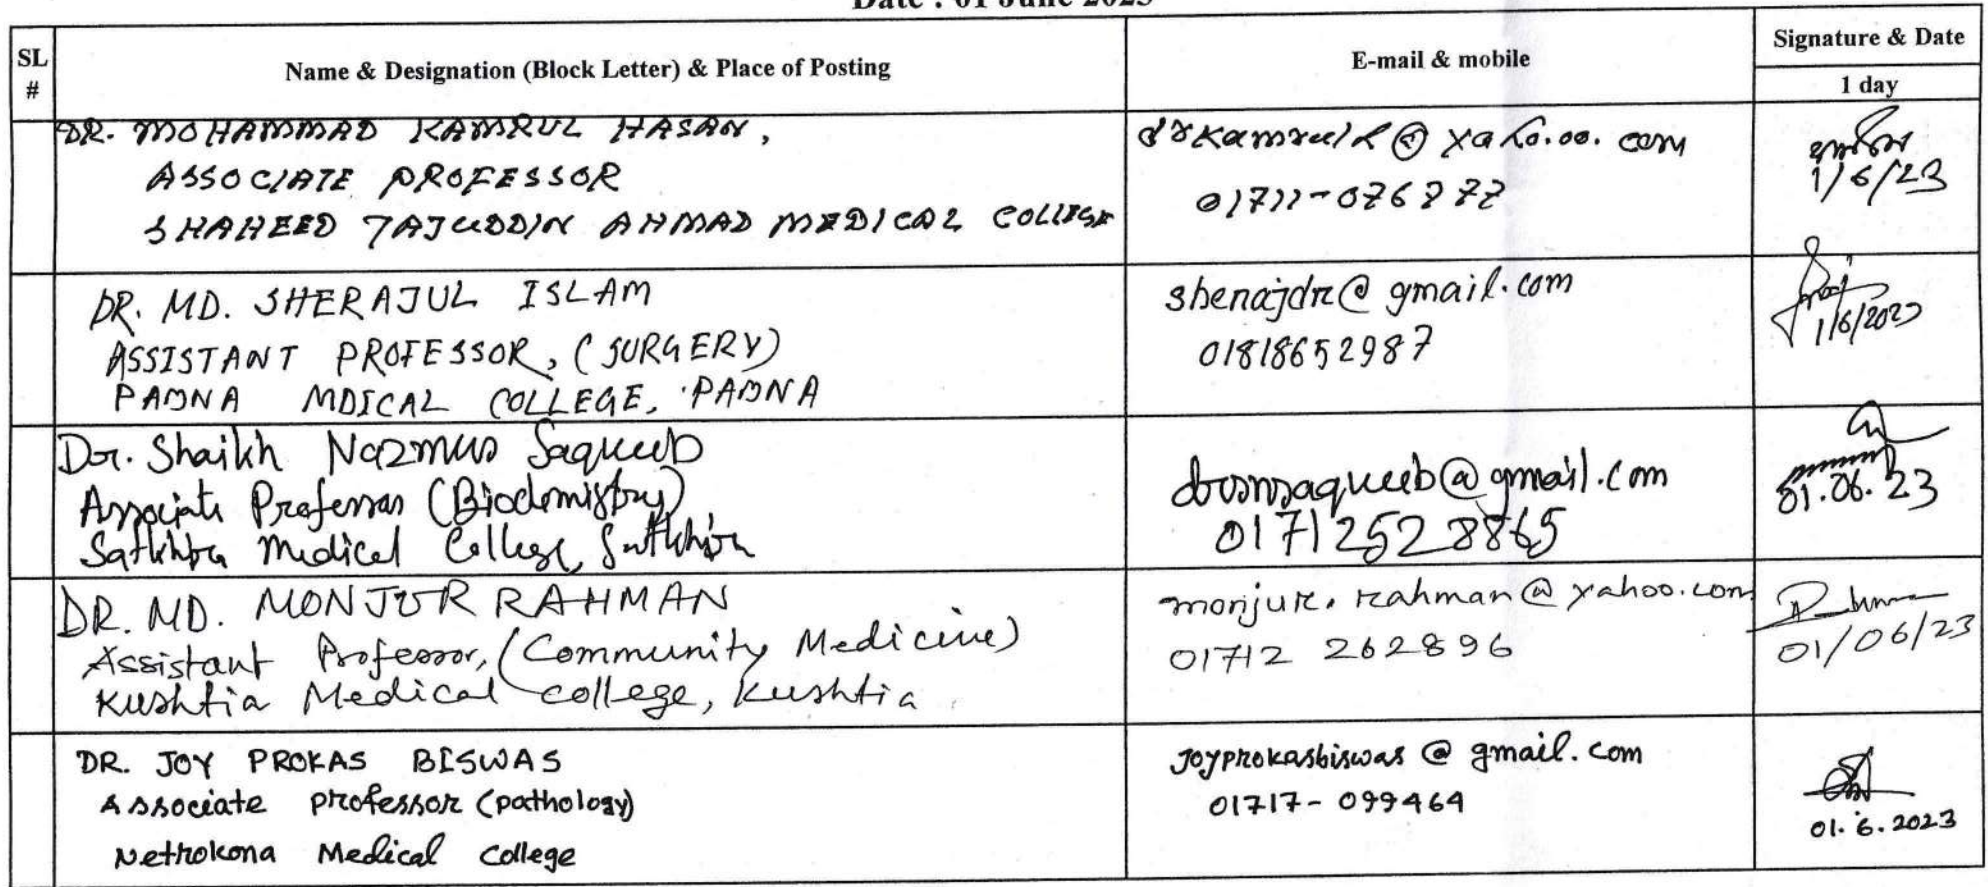 Date : 01 June 2023
SL # Name & Designation (Block Letter) & Place of Posting E-mail & mobile Signature & Date
1 day
DR. MOHAMMAD KAMRUL HASAN,
ASSOCIATE PROFESSOR
SHAHEED TAJUDDIN AHMAD MEDICAL COLLEGE
1/6/23
DR. MD. SHERAJUL ISLAM
ASSISTANT PROFESSOR, (SURGERY)
PABNA MDICAL COLLEGE, PABNA
sherajdr@gmail.com
01818652987
1/6/2023
Dr. Shaikh Nazmus Saqueeb
Associate Professor (Biochemistry)
Satkhira Medical College, Satkhira
@gmail.com
01712528865
01.06.23
DR. MD. MONJUR RAHMAN
Assistant Professor, (Community Medicine)
Kushtia Medical college, Kushtia
monjur.rahman@yahoo.com
01712 262896
01/06/23
DR. JOY PROKAS BISWAS
Associate professor (pathology)
Netrokona Medical College
joyprokasbiswas@gmail.com
01717-099464
01.6.2023